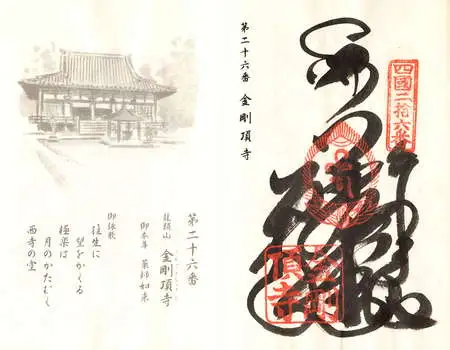 四國二拾六番
金剛
頂寺
第二十六番 金剛頂寺
第二十六番
龍頭山 金剛頂寺
御本尊 薬師如来
御詠歌
往生に
望をかくる
極楽は
月のかたむく
西寺の空